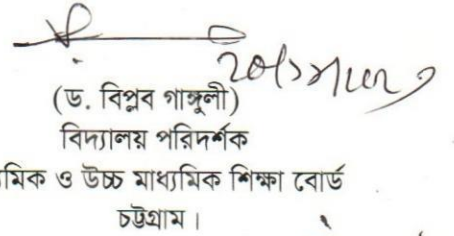 (ড. বিপ্লব গাঙ্গুলী)
বিদ্যালয় পরিদর্শক
মিক ও উচ্চ মাধ্যমিক শিক্ষা বোর্ড
চট্টগ্রাম।